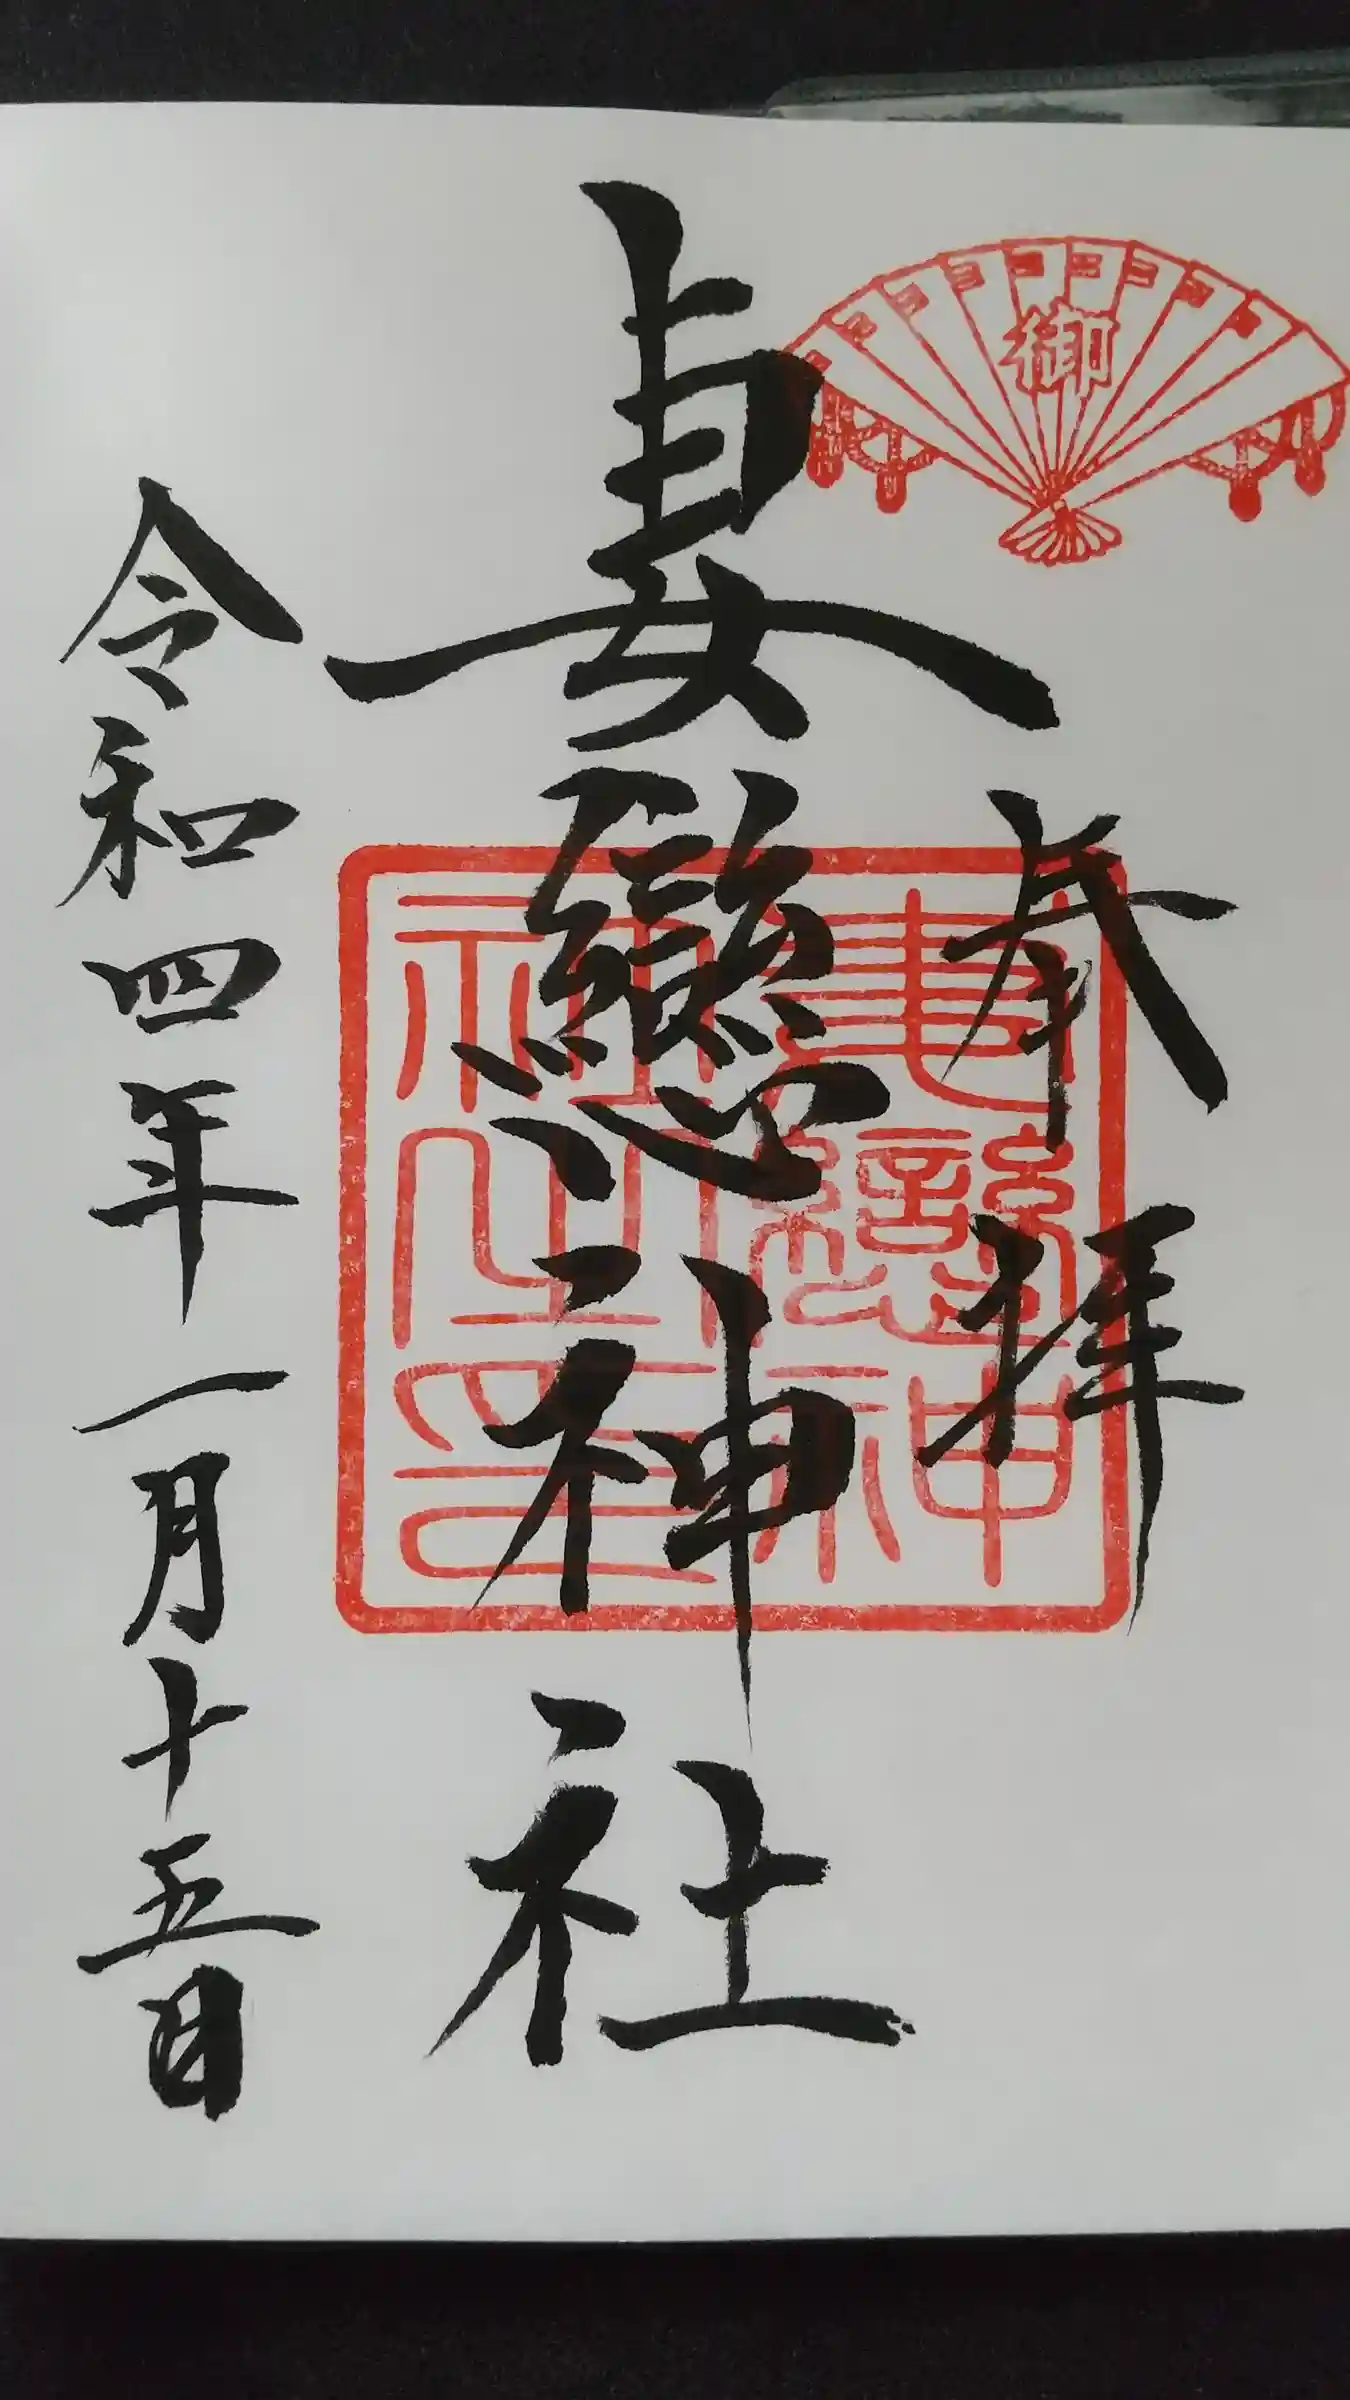 御
奉拝
妻戀神社
妻戀神社之印
令和四年一月十五日